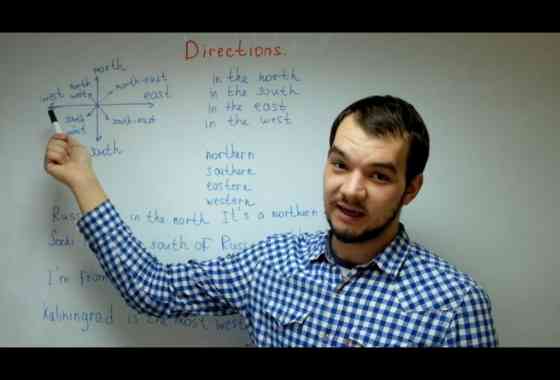 Directions.
north
north-east
north
west
west
east
south
west
south-east
south
in the north
in the south
in the east
in the west
northern
southern
eastern
western
in the north It's a northern
Sochi south of
I'm from
Kaliningrad is the most